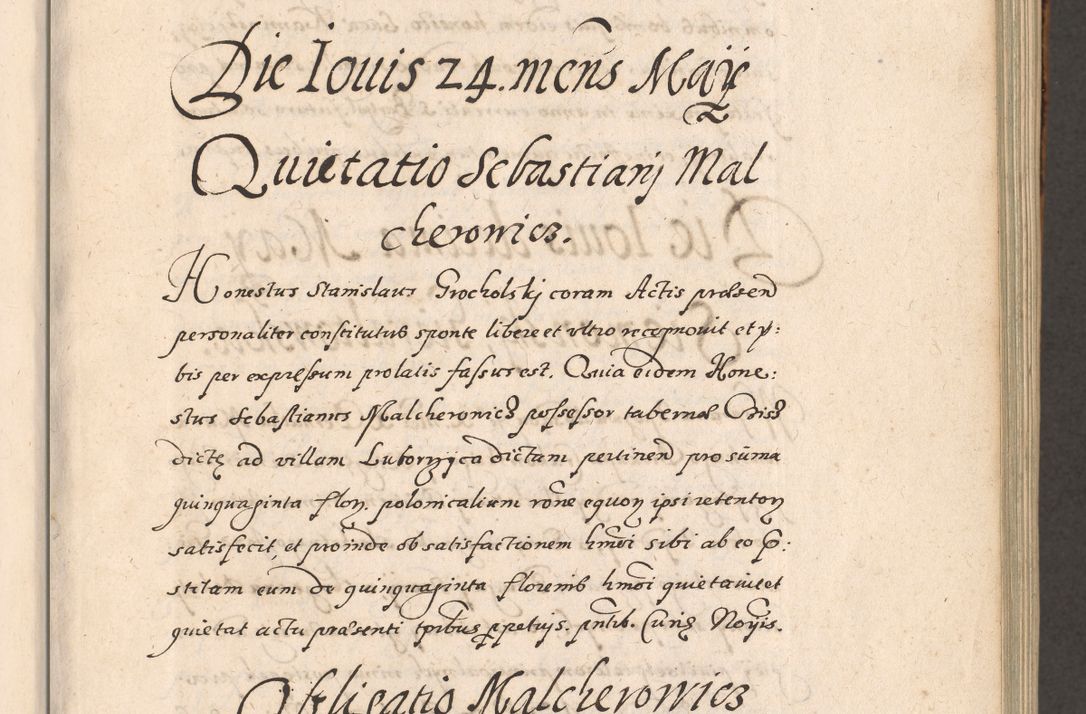 Die Iouis 24. mens Maij
Quietatio Sebastianj Mal
cherowicz.
Honestus Stanislaus Grocholskj coram Actis præsend
personaliter constitutus sponte libere et vltro recognouit et v:
bis per expressum prolatis fassus est. Quia eidem Hone:
stus Sebastianus Malcherowicz possessor tabernæ
dictę ad villam Luborzyca dictam pertinend pro suma
quinquaginta flon. polonicalium rōne equon ipsi retenton
satisfecit, et proinde ob satisfactionem hmōi sibi ab eo p̄:
stitam eum de quinquaginta florenis hmōi quietauit et
quietat actu præsenti tpibus ppetuis. pntib. Curię Noţijs.
Obligatio Malcherowicz